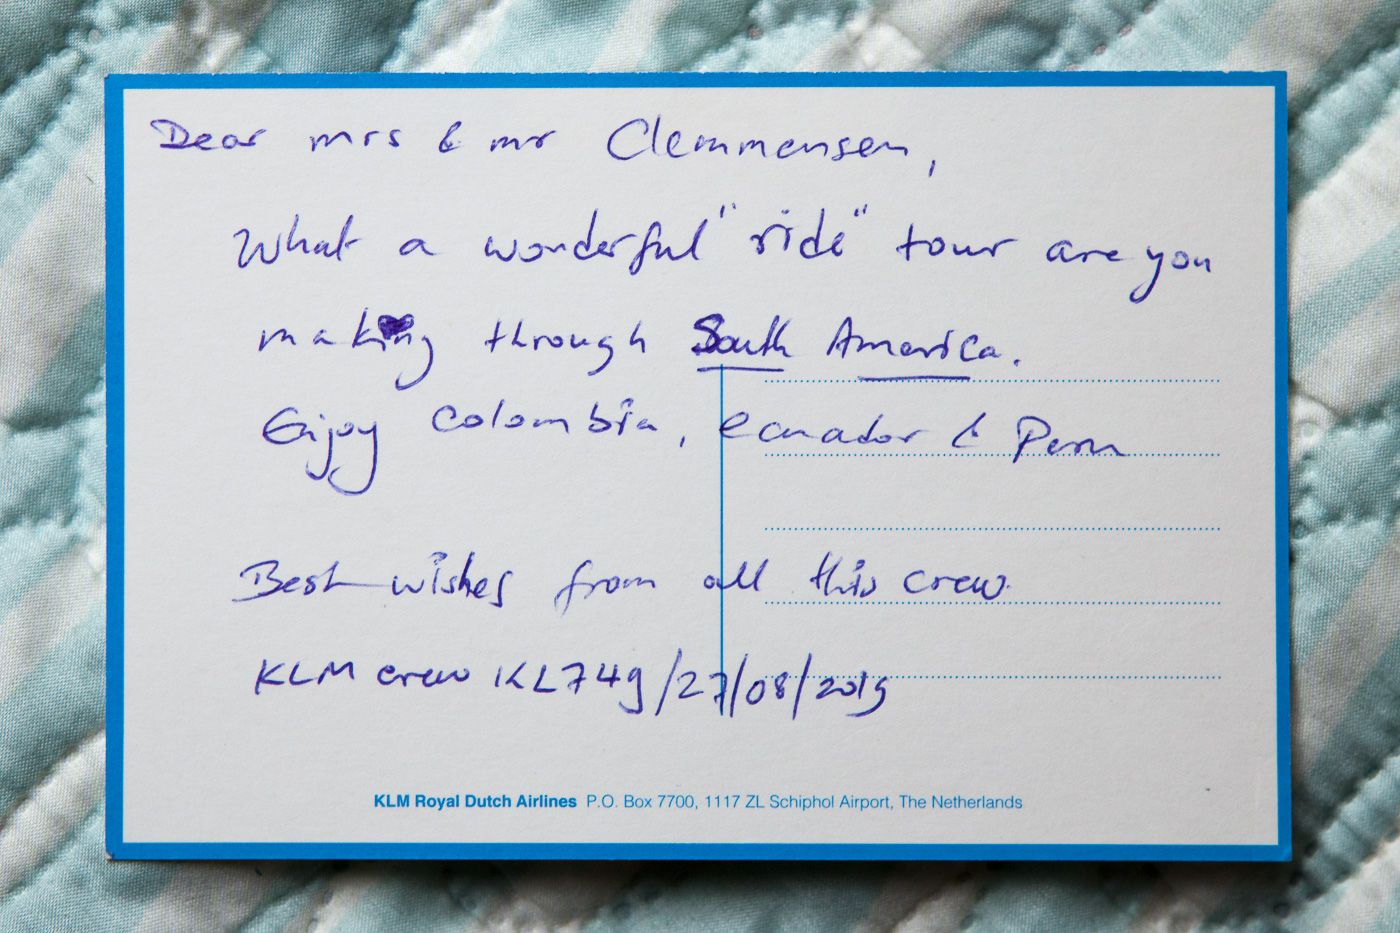 Dear mrs & mr Clemmensen,
What a wonderful "ride" tour are you
making through South America.
Enjoy Colombia, ecuador & Peru
Best wishes from all this crew
KLM crew KL749/27/08/2019
KLM Royal Dutch Airlines P.O. Box 7700, 1117 ZL Schiphol Airport, The Netherlands